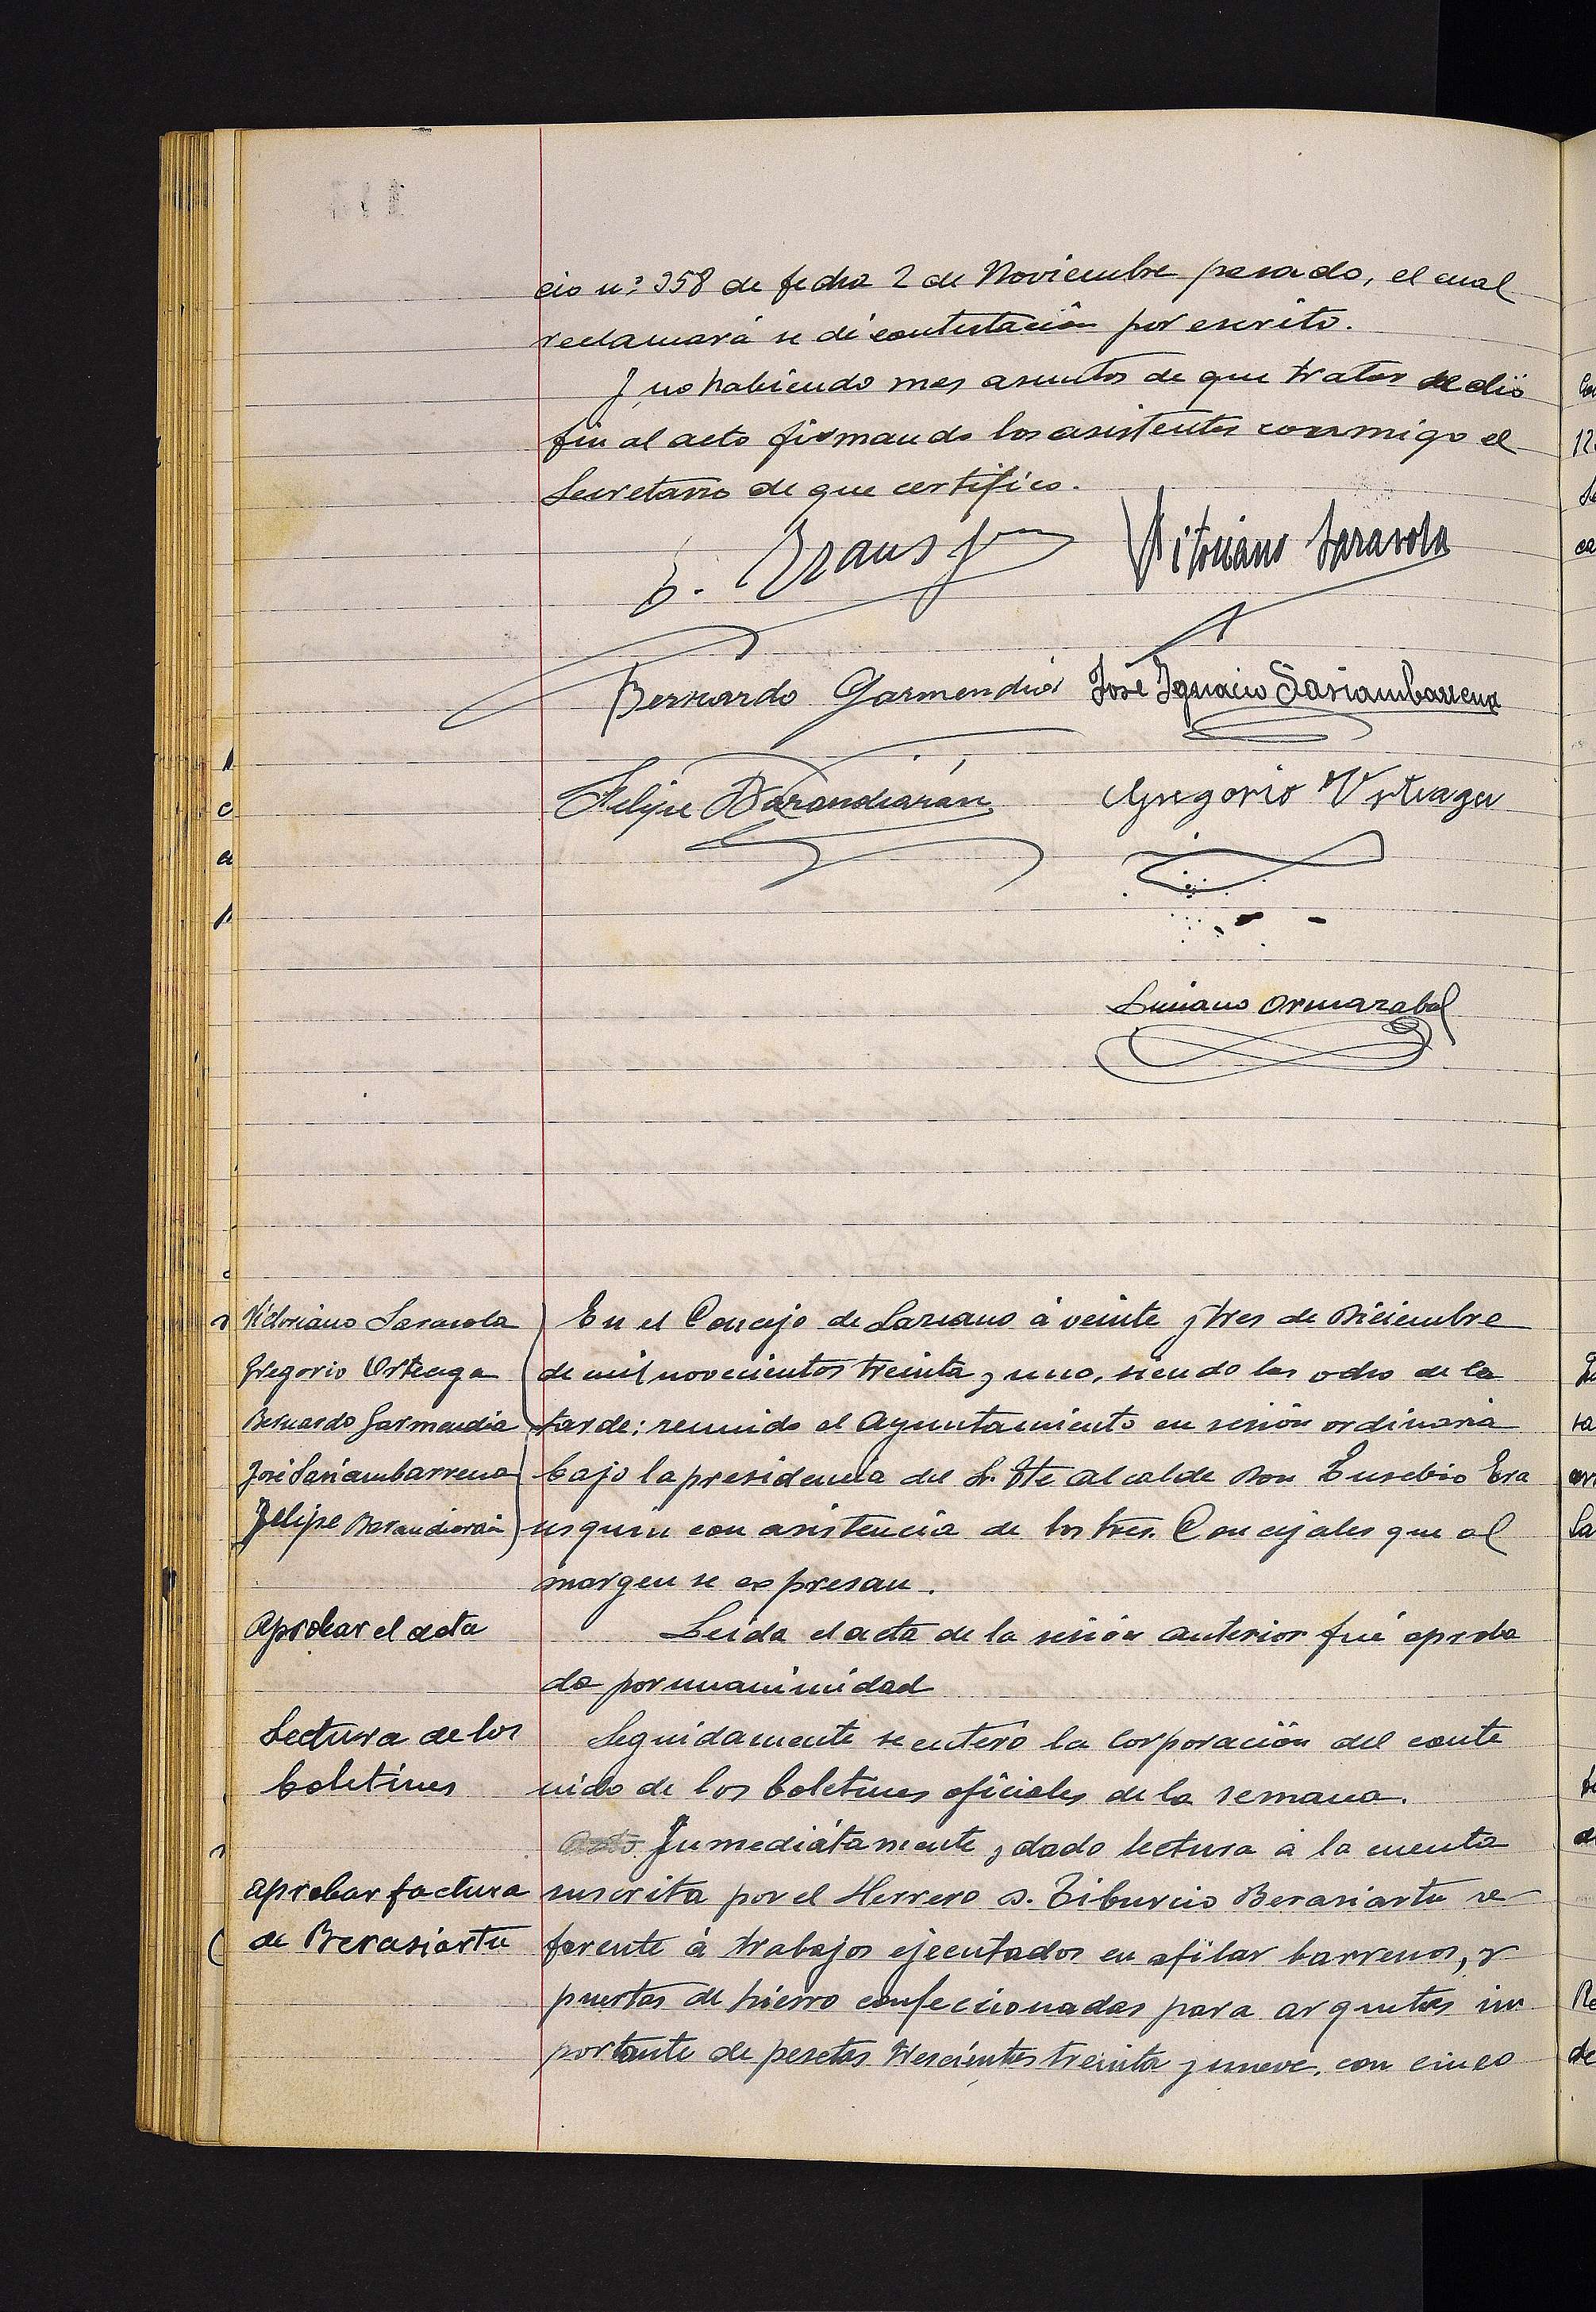 cio nº 358 de fecha 2 de Noviembre pasado, el cual
reclamará se dé contestación por escrito.
Y no habiendo mas asuntos de que tratar se dió
fin al acto firmando los asistentes conmigo el
Secretario de que certifico.
E. Erausquin
Vitoriano Sarasola
Bernardo Garmendia
José Ignacio Sasiambarrena
Felipe Barandiarán
Gregorio Urteaga
Luciano Ormazabal
Victoriano Sarasola
Gregorio Urteaga
Bernardo Garmendia
José Sasiambarrena
Felipe Barandiarán
En el Concejo de Lazcano á veinte y tres de Diciembre
de mil novecientos treinta y uno, siendo las ocho de la
tarde; reunido el Ayuntamiento en sesión ordinaria
bajo la presidencia del Sr. Tte alcalde Don Eusebio Era
usquin con asistencia de los tres. Concejales que al
margen se expresan.
Aprobar el acta
Leida el acta de la sesión anterior fué aproba
da por unanimidad
Lectura de los
boletines
Seguidamente se enteró la Corporación del conte
nido de los boletines oficiales de la semana.
Inmediátamente y dado lectura á la cuenta
aprobar factura
de Berasiartu
suscrita por el Herrero D. Tiburcio Berasiartu re
ferente á trabajos ejecutados en afilar barrenos, y
puertas de hierro confeccionadas para arquetas im
portante de pesetas trescientas treinta y nueve, con cinco